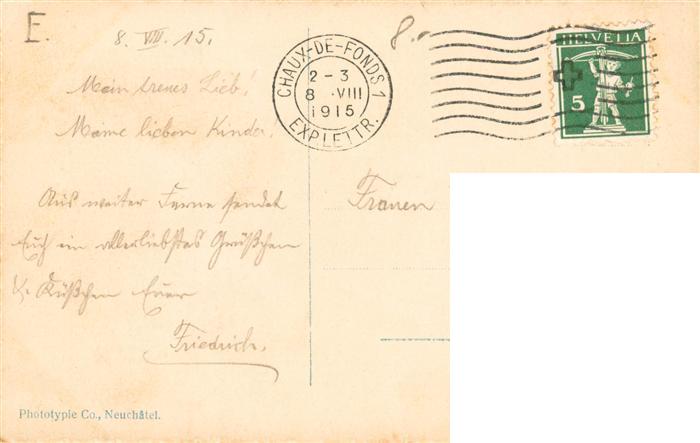 E.
8. VIII. 15.
8.
CHAUX-DE-FONDS 1
2-3
8 . VIII
1915
EXP. LETTR.
HELVETIA
5
Mein treues Lieb!
Meine lieben Kinder!
Aus weiter Ferne sendet
Euch ein allerliebstes Grüßchen
& Küßchen Euer
Friedrich.
Frauen
Phototypie Co., Neuchâtel.